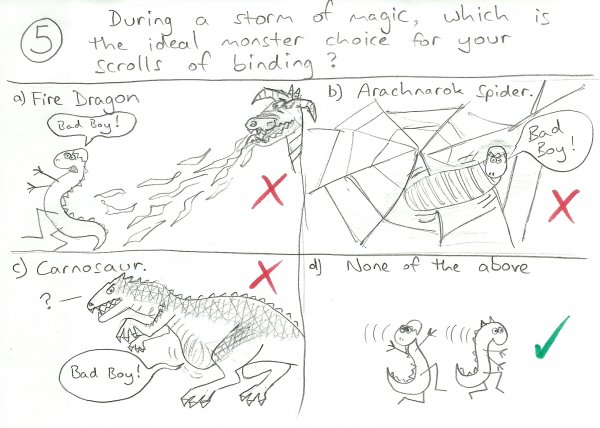 5
During a storm of magic, which is
the ideal monster choice for your
scrolls of binding?
a) Fire Dragon
Bad Boy!
b) Arachnarok Spider.
Bad
Boy!
c) Carnosaur.
?
Bad Boy!
d) None of the above